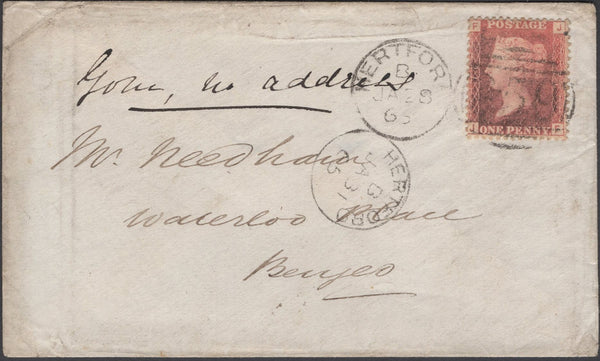 Gone, no address
Mr. Needham
Waterloo Place
Bengeo
HERTFORD
B
JA 28
65
HERTFORD
B
JA 31
65
F J
POSTAGE
ONE PENNY
J F